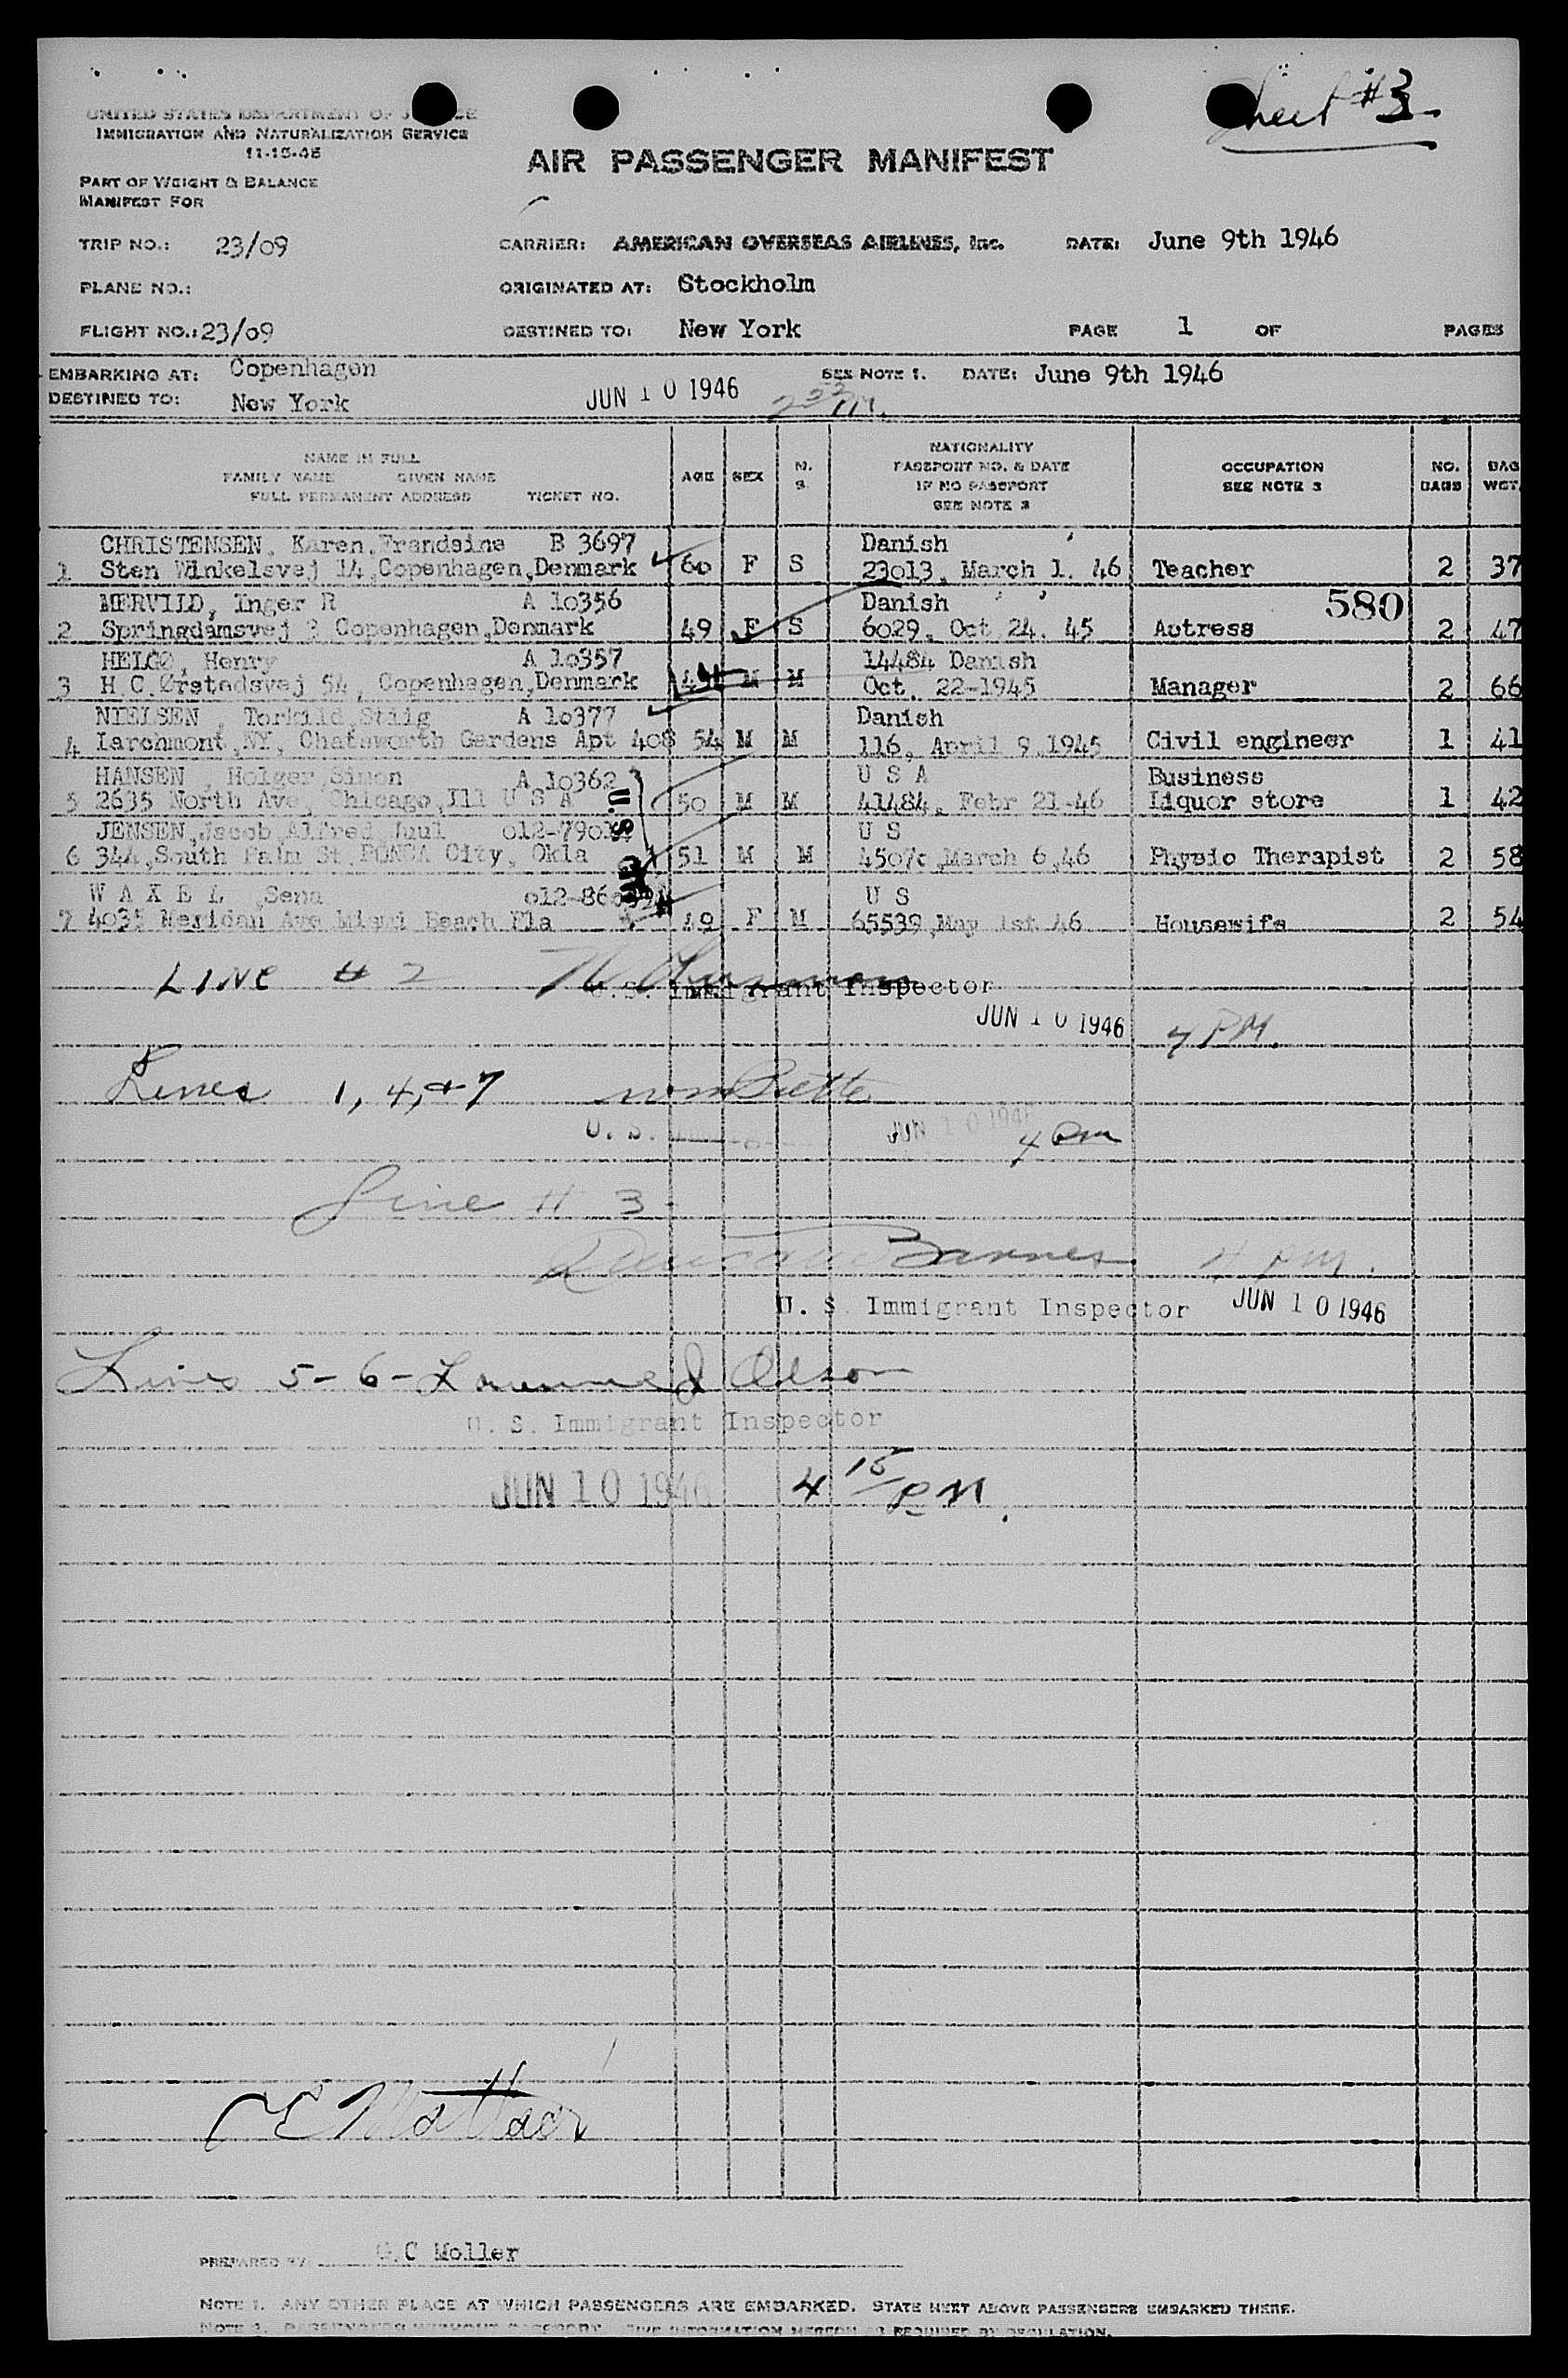 Sheet #3
UNITED STATES DEPARTMENT OF JUSTICE
IMMIGRATION AND NATURALIZATION SERVICE
11-15-45
AIR PASSENGER MANIFEST
PART OF WEIGHT & BALANCE
MANIFEST FOR
TRIP NO.: 23/09 CARRIER: AMERICAN OVERSEAS AIRLINES, Inc. DATE: June 9th 1946
PLANE NO.: ORIGINATED AT: Stockholm
FLIGHT NO.: 23/09 DESTINED TO: New York PAGE 1 OF PAGES
EMBARKING AT: Copenhagen SEE NOTE 1. DATE: June 9th 1946
DESTINED TO: New York JUN 10 1946
NAME IN FULL
FAMILY NAME GIVEN NAME
FULL PERMANENT ADDRESS TICKET NO.
AGE SEX M. S.
NATIONALITY
PASSPORT NO. & DATE
IF NO PASSPORT
SEE NOTE 2
OCCUPATION
SEE NOTE 3
NO. BAGS
BAG WGT.
CHRISTENSEN, Karen, Frandsine B 3697 Danish
1 Sten Winkelsvej 14, Copenhagen, Denmark 60 F S 23013, March 1. 46 Teacher 2 37
MERVILD, Inger R A 10356 Danish 580
2 Springdamsvej Copenhagen, Denmark 49 F S 6029, Oct 24. 45 Actress 2 47
HELGØ, Henry A 10357 14484 Danish
3 H.C.Ørstedsvej 54, Copenhagen, Denmark 49 M M Oct. 22-1945 Manager 2 66
NIELSEN, Torkild, Stiig A 10377 Danish
4 Larchmont, NY, Chatsworth Gardens Apt 408 54 M M 116, April 9.1945 Civil engineer 1 41
HANSEN, Holger, Simon A 10362 U S A Business
5 2635 North Ave, Chicago, Ill U S A 50 M M 41484, Febr 21-46 Liquor store 1 42
JENSEN, Jacob, Alfred Juul U S
6 344, South Palm St, PONCA City, Okla 51 M M 4507c, March 6,46 Physio Therapist 2 58
W A X E L, Sena U S
7 4035 Meridan Ave Miami Beach Fla 49 F M 65539, May 1st 46 Housewife 2 54
LINE # 2
U.S. Immigrant Inspector
JUN 10 1946 4 PM.
Lines 1, 4, + 7
U. S.
JUN 10 1946 4 Pm
Line # 3-
Barnes 4 pm.
U. S. Immigrant Inspector JUN 10 1946
Lines 5-6- Olson
U. S. Immigrant Inspector
JUN 10 1946 4 15 PM.
C Moller
PREPARED BY
NOTE 1. ANY OTHER PLACE AT WHICH PASSENGERS ARE EMBARKED. STATE NEXT ABOVE PASSENGERS EMBARKED THERE.
NOTE 2. PASSENGERS WITHOUT PASSPORT. GIVE INFORMATION HEREON AS REQUIRED BY REGULATION.